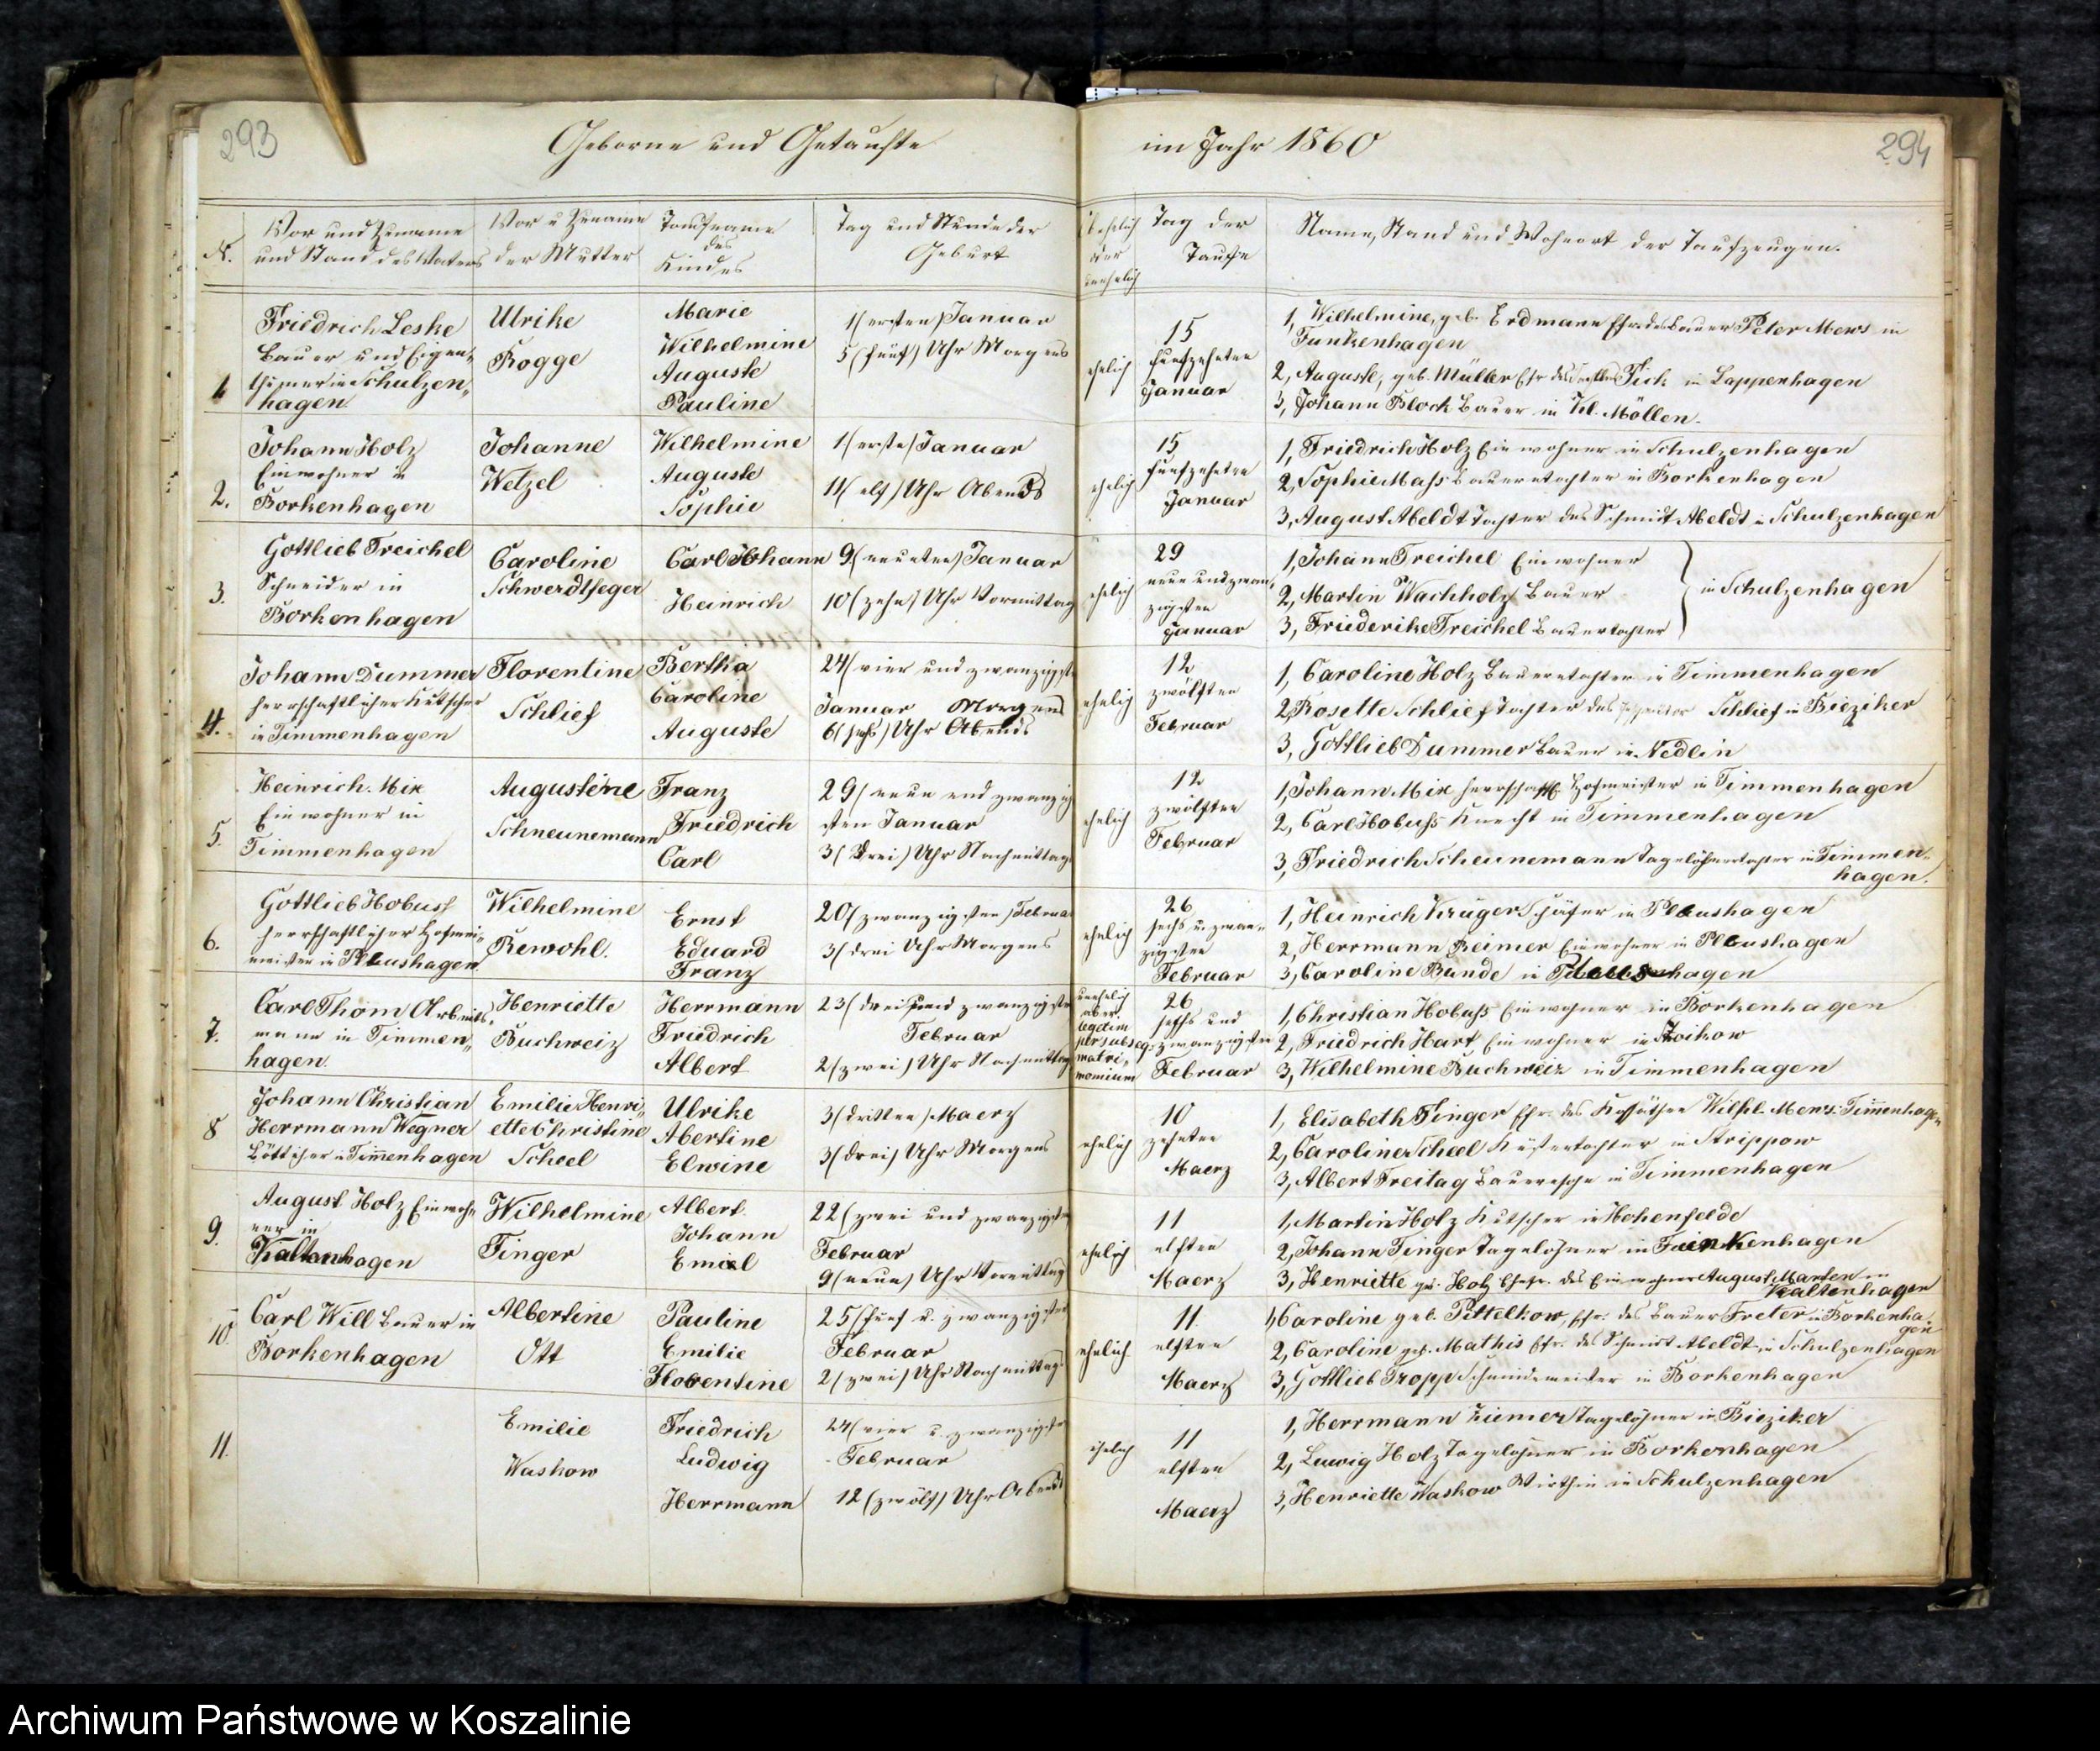 293
Geborne und Getaufte
im Jahr 1860
294
N.
Vor und Zuname
und Stand des Vaters
Vor u Zuname
der Mutter
Taufname
des
Kindes
Tag und Stunde der
Geburt
ehelich
oder
unehelich
Tag der
Taufe
Name, Stand und Wohnort der Taufzeugen.
1
Friedrich Leske
Bauer und Eigen„
thümer in Schulzen„
hagen.
Ulrike
Rogge
Marie
Wilhelmine
Auguste
Pauline
1 (ersten) Januar
5 (fünf) Uhr Morgens
ehelich
15
fünfzehnten
Januar
1, Wilhelmine, geb. Erdmann Efr des Bauer Peter Mews in
Funkenhagen
2, Auguste, geb. Müller Efr des Fick in Lappenhagen
3, Johann Block Bauer in Kl. Möllen.
2.
Johann Holz
Einwohner in
Borkenhagen
Johanne
Wetzel
Wilhelmine
Auguste
Sophie
1 (erste) Januar
11 (elf) Uhr Abends
ehelich
15
fünfzehnten
Januar
1, Friedrich Holz Einwohner in Schulzenhagen
2, Sophie Mass Bauerntochter in Borkenhagen
3, August Abeldt Tochter des Schmidt Abeldt in Schulzenhagen
3.
Gottlieb Treichel
Schneider in
Borkenhagen
Caroline
Schwerdtfeger
Carl Johann
Heinrich
9 (neunten) Januar
10 (zehn) Uhr Vormittag
ehelich
29
neun und zwan„
zigsten
Januar
1, Johann Treichel Einwohner
2, Martin Wachholz Bauer
3, Friederike Treichel Bauertochter
in Schulzenhagen
4.
Johann Dummer
herrschaftlicher Kutscher
in Timmenhagen
Florentine
Schlief
Bertha
Caroline
Auguste
24 (vier und zwanzigste
Januar Morgens
6 (sechs) Uhr Abends
ehelich
12
zwölften
Februar
1, Caroline Holz Bauerntochter in Timmenhagen
2, Rosette Schlief Tochter des Schlief in Bieziker
3, Gottlieb Dummer Bauer in Nedlin
5.
Heinrich Mix
Einwohner in
Timmenhagen
Augustine
Schneunemann
Franz
Friedrich
Carl
29 (neun und zwanzig
sten Januar
3 (drei) Uhr Nachmittag
ehelich
12
zwölften
Februar
1, Johann Mix herrschaftl. Hofmeister in Timmenhagen
2, Carl Hobuss Knecht in Timmenhagen
3, Friedrich Scheunemann Tagelöhnertochter in Timmen„
hagen.
6.
Gottlieb Hobuss
herrschaftlicher Hofmei„
meister in Pleushagen
Wilhelmine
Rewohl.
Ernst
Eduard
Franz
20 (zwanzigsten) Februa
3 (drei Uhr Morgens
ehelich
26
sechs u. zwan„
zigsten
Februar
1, Heinrich Krüger Schäfer in Pleushagen
2, Herrmann Reimer Einwohner in Pleushagen
3, Caroline Bande in Pleushagen
7.
Carl Thom Arbeits„
mann in Timmen„
hagen.
Henriette
Buchweiz
Herrmann
Friedrich
Albert
23 (drei und zwanzigste
Februar
2 (zwei) Uhr Nachmittag
unehelich
aber
legetim
per subseq.
matri„
monium
26
sechs und
zwanzigsten
Februar
1, Christian Hobuss Einwohner in Borkenhagen
2, Friedrich Hart Einwohner in Zoikow
3, Wilhelmine Buchweiz in Timmenhagen
8
Johann Christian
Herrmann Wegner
Böttcher in Timenhagen
Emilie Henri„
ette Christine
Scheel
Ulrike
Abertine
Elwine
3 (dritten) Maerz
3 (drei) Uhr Morgens
ehelich
10
zehnten
Maerz
1, Elisabeth Finger Efr. des Kossäthen Wilh. Mews in Timenhagen
2, Caroline Scheel Küstertochter in Strippow
3, Albert Freitag Bauersohn in Timmenhagen
9.
August Holz Einwoh„
ner in
Kaltenhagen
Wilhelmine
Finger
Albert
Johann
Emiel
22 (zwei und zwanzigsten
Februar
9 (neun) Uhr Vormittag
ehelich
11
elften
Maerz
1, Martin Holz Kutscher in Hohenfelde
2, Johann Finger Tagelöhner in Funkenhagen
3, Henriette geb. Holz Ehefr. des Einwohner August Marten in
Kaltenhagen
10.
Carl Will Bauer in
Borkenhagen
Albertine
Ott
Pauline
Emilie
Florentine
25 (fünf u. zwanzigsten
Februar
2 (zwei) Uhr Nachmittag
ehelich
11.
elften
Maerz
1, Caroline geb. Pittelkow, Efr. des Bauer Freter in Borkenha„
gen
2, Caroline geb. Mathis Efr. des Schmidt Abeldt in Schulzenhagen
3, Gottlieb Tropp Schmiedemeister in Borkenhagen
11.
Emilie
Waskow
Friedrich
Ludwig
Herrmann
24 (vier u. zwanzigsten
Februar
12 (zwölf) Uhr Abends
ehelich
11
elften
Maerz
1, Herrmann Ziemer Tagelöhner in Bieziker
2, Luwig Holz Tagelöhner in Borkenhagen
3, Henriette Waskow Wirthin in Schulzenhagen
Archiwum Państwowe w Koszalinie